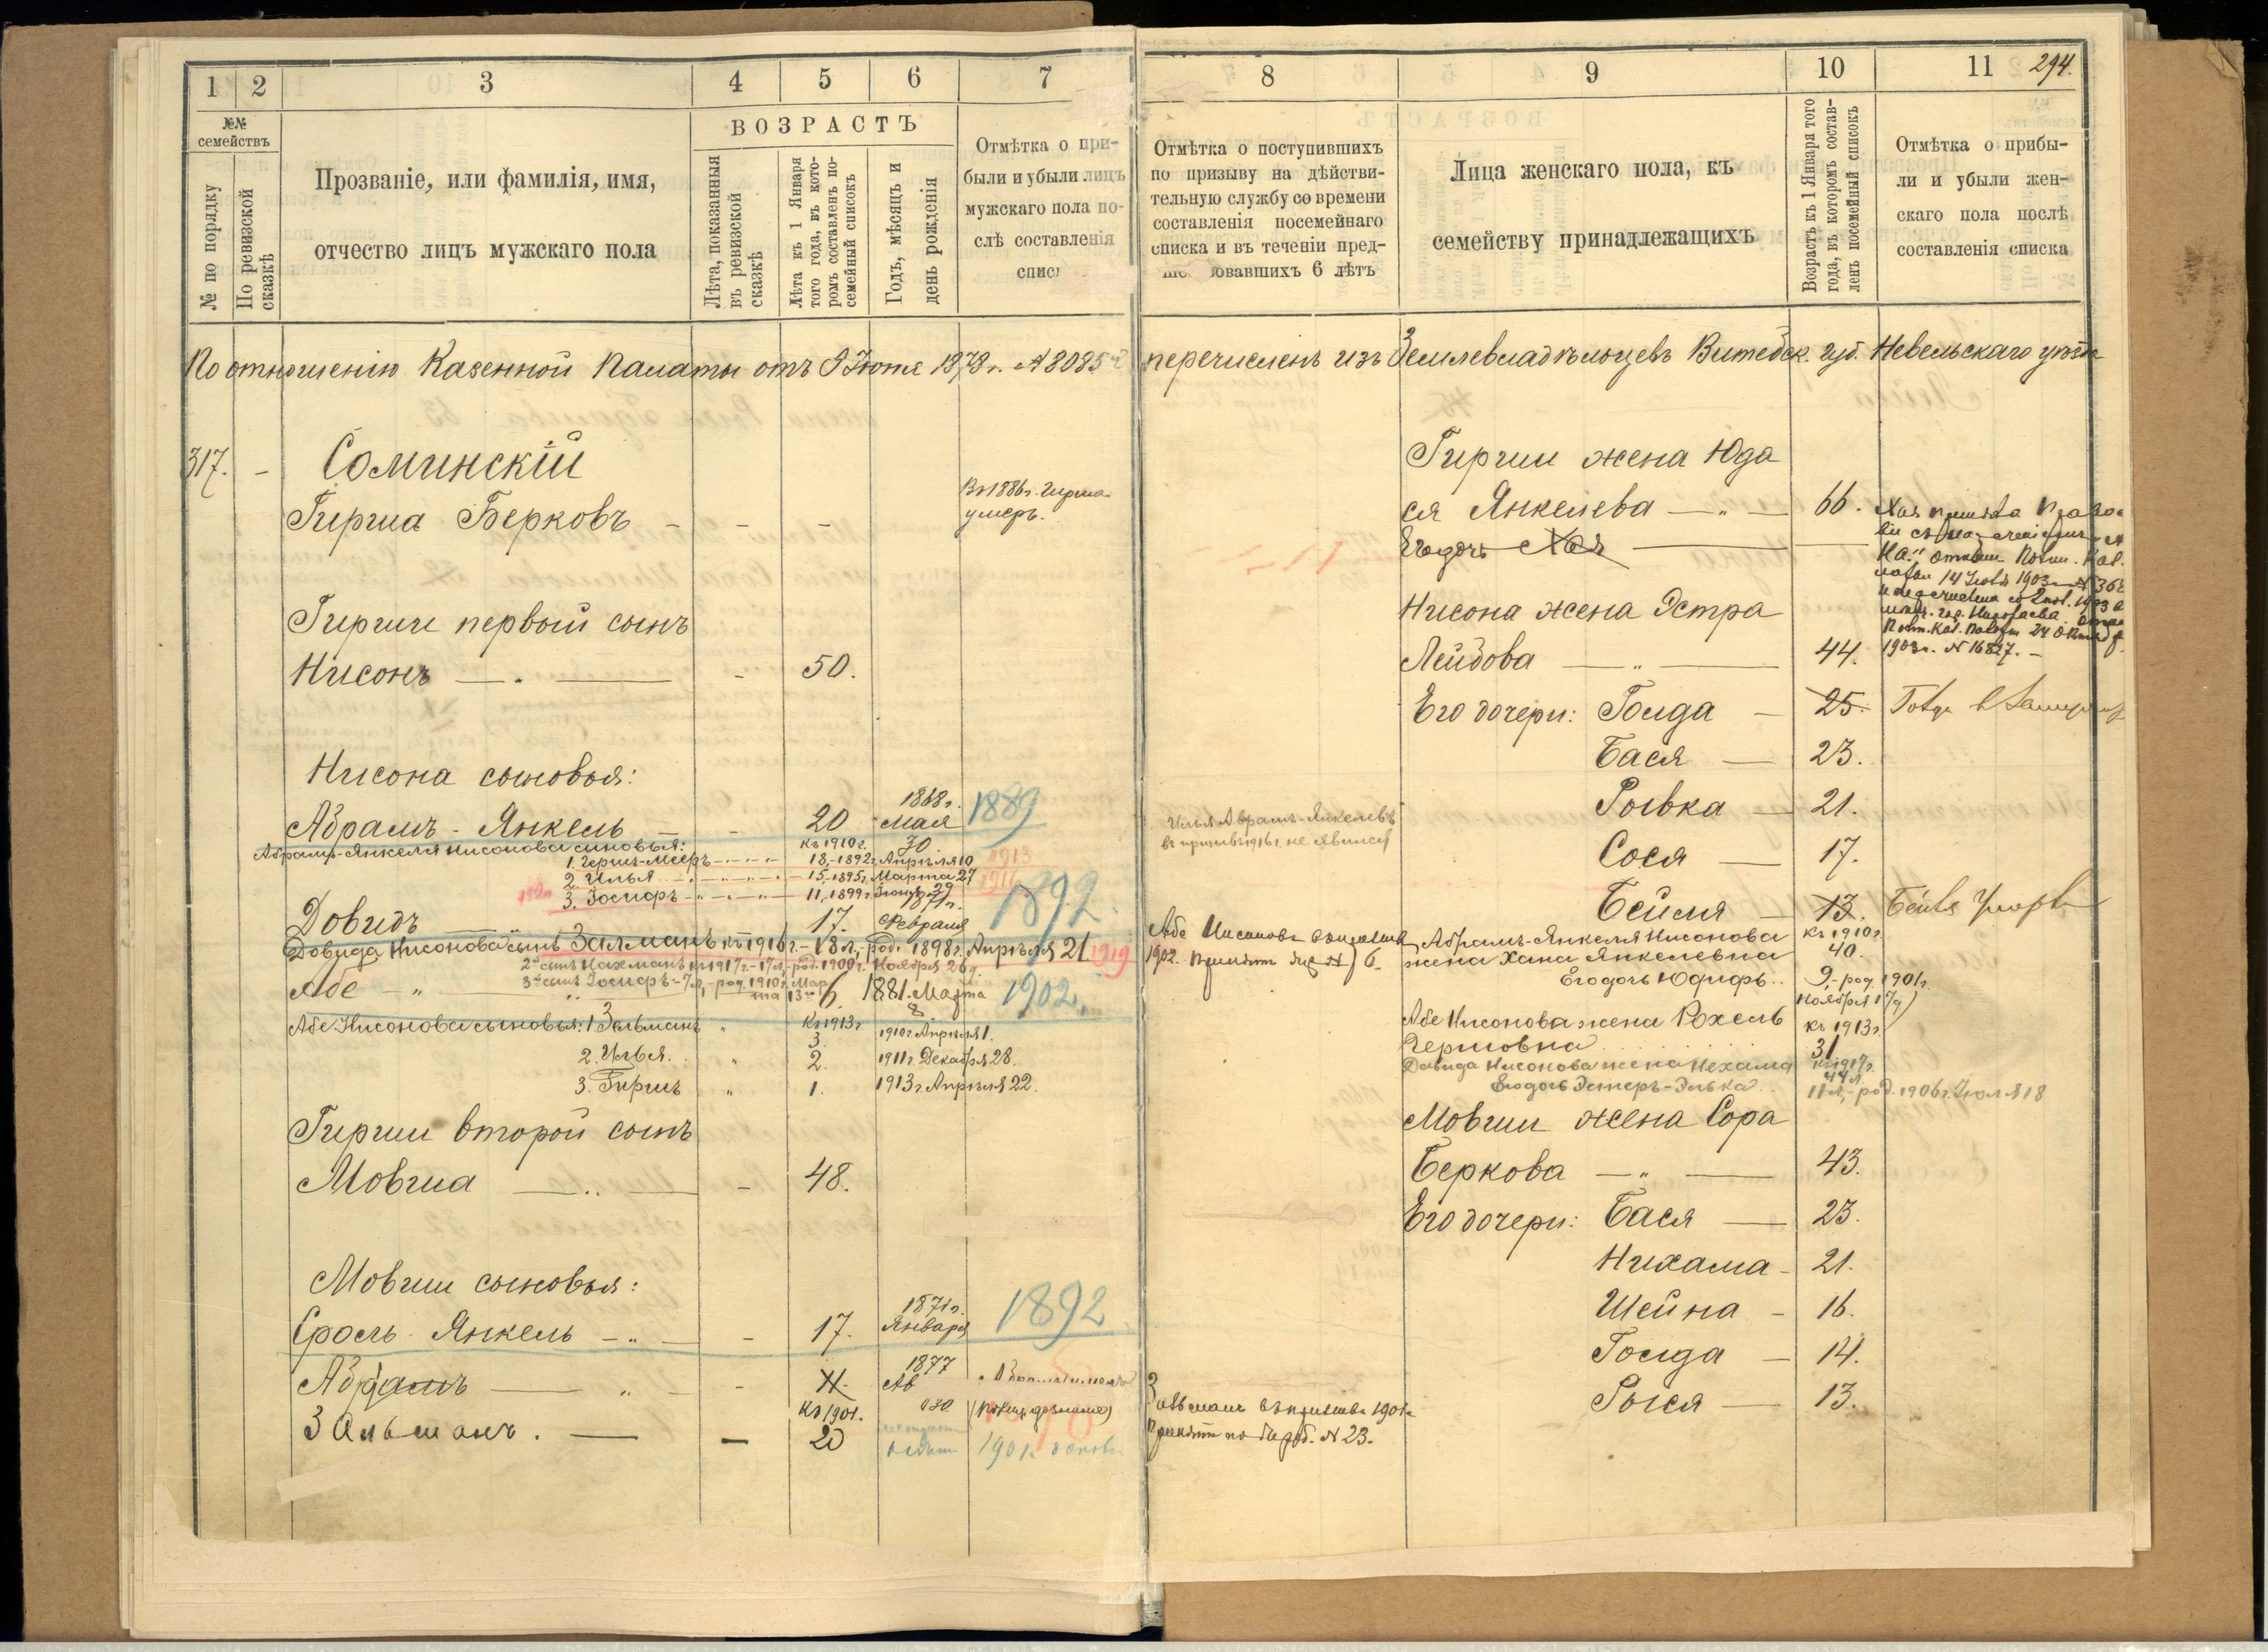 1 2 3 4 5 6 7
№№ семействъ
№ по порядку
По ревизской сказкѣ
Прозваніе, или фамилія, имя,
отчество лицъ мужскаго пола
ВОЗРАСТЪ
Лѣта, показанныя
въ ревизской
сказкѣ
Лѣта къ 1 Января
того года, въ кото-
ромъ составленъ по-
семейный списокъ
Годъ, мѣсяцъ и
день рожденія
Отмѣтка о при-
были и убыли лицъ
мужскаго пола по-
слѣ составленія
спис
По отношенію Казенной Палаты отъ 9 Іюня 1878 г. № 8085
317. - Соминскій
Гирша Берковъ - - -
Въ 1886 г. Гирша
умеръ.
Гирши первый сынъ
Нисонъ - 50.
Нисона сыновья:
Абрамъ - Янкель - 20 1868 г. Мая 30 1889
Абрамъ-Янкеля Нисонова сыновья: къ 1910 г.
1. Гершъ-Мееръ - 18,-1892 г. Апрѣля 10 1913
2. Илья - 15,-1895 г. Марта 27 1916
1920 3. Іосифъ - 11,-1899 г. Іюня 29
Довидъ 17. 1871 г. Февраля 1892
Довида Нисонова сынъ Залманъ къ 1916 г.-18 л,-род. 1898 г. Апрѣля 21 1919
2й сынъ Нахманъ къ 1917 г.-17 л,-род. 1900 г. Ноября 26 д.
3й сынъ Іосифъ-7 л,-род. 1910 г. Мар
та 13
Абе - " 6. 1881. Марта 8. 1902.
Абе Нисонова сыновья: 1 Зальманъ " къ 1913 г. 3. 1910 г. Апрѣля 1.
2. Илья. " 2. 1911 г. Декабря 28.
3. Гиршъ " 1. 1913 г. Апрѣля 22.
Гирши второй сынъ
Мовша - 48.
Мовши сыновья:
Сроль - Янкель - " - 17. 1871 г. Января 1892
Абрамъ - " - 11. 1877
Зальманъ. - къ 1901. 20 1901
8 9 10 11 294.
Отмѣтка о поступившихъ
по призыву на дѣйстви-
тельную службу со времени
составленія посемейнаго
списка и въ теченіи пред-
шествовавшихъ 6 лѣтъ
Лица женскаго пола, къ
семейству принадлежащихъ
Возрастъ къ 1 Января того
года, въ которомъ состав-
ленъ посемейный списокъ
Отмѣтка о прибы-
ли и убыли жен-
скаго пола послѣ
составленія списка
перечисленъ изъ Землевладѣльцевъ Витебск. губ. Невельскаго уѣзда
Гирши жена Юда
ся Янкелева - " - 66.
Его дочь Хая
Нисона жена Эстра
Лейбова - " - 44.
1903 г. № 16827. -
Его дочери: Голда - 25.
Бася - 23.
Рывка - 21.
Илья Абрамъ-Янкелевъ
въ призывъ 1916 г. не явился
Сося - 17.
Бейля - 13.
Абрамъ-Янкеля Нисонова къ 1910 г.
жена Хана Янкелевна 40.
Его дочь Юдифь.. 9,-род. 1901 г.
Ноября 17 д.
Абе Нисонова жена Рохель къ 1913 г.
Гершовна 31
Давида Нисонова жена Нехама къ 1917 г.
44 л.
Его дочь Эстеръ-Элька. 11 л,-род. 1906 г. Іюля 18
Мовши жена Сора
Беркова - " - 43.
Его дочери: Бася - 23.
Нихама - 21.
Шейна - 16.
Голда - 14.
Рыся - 13.
Зальманъ въ призывъ 1901 г.
Принятъ по жереб. № 23.